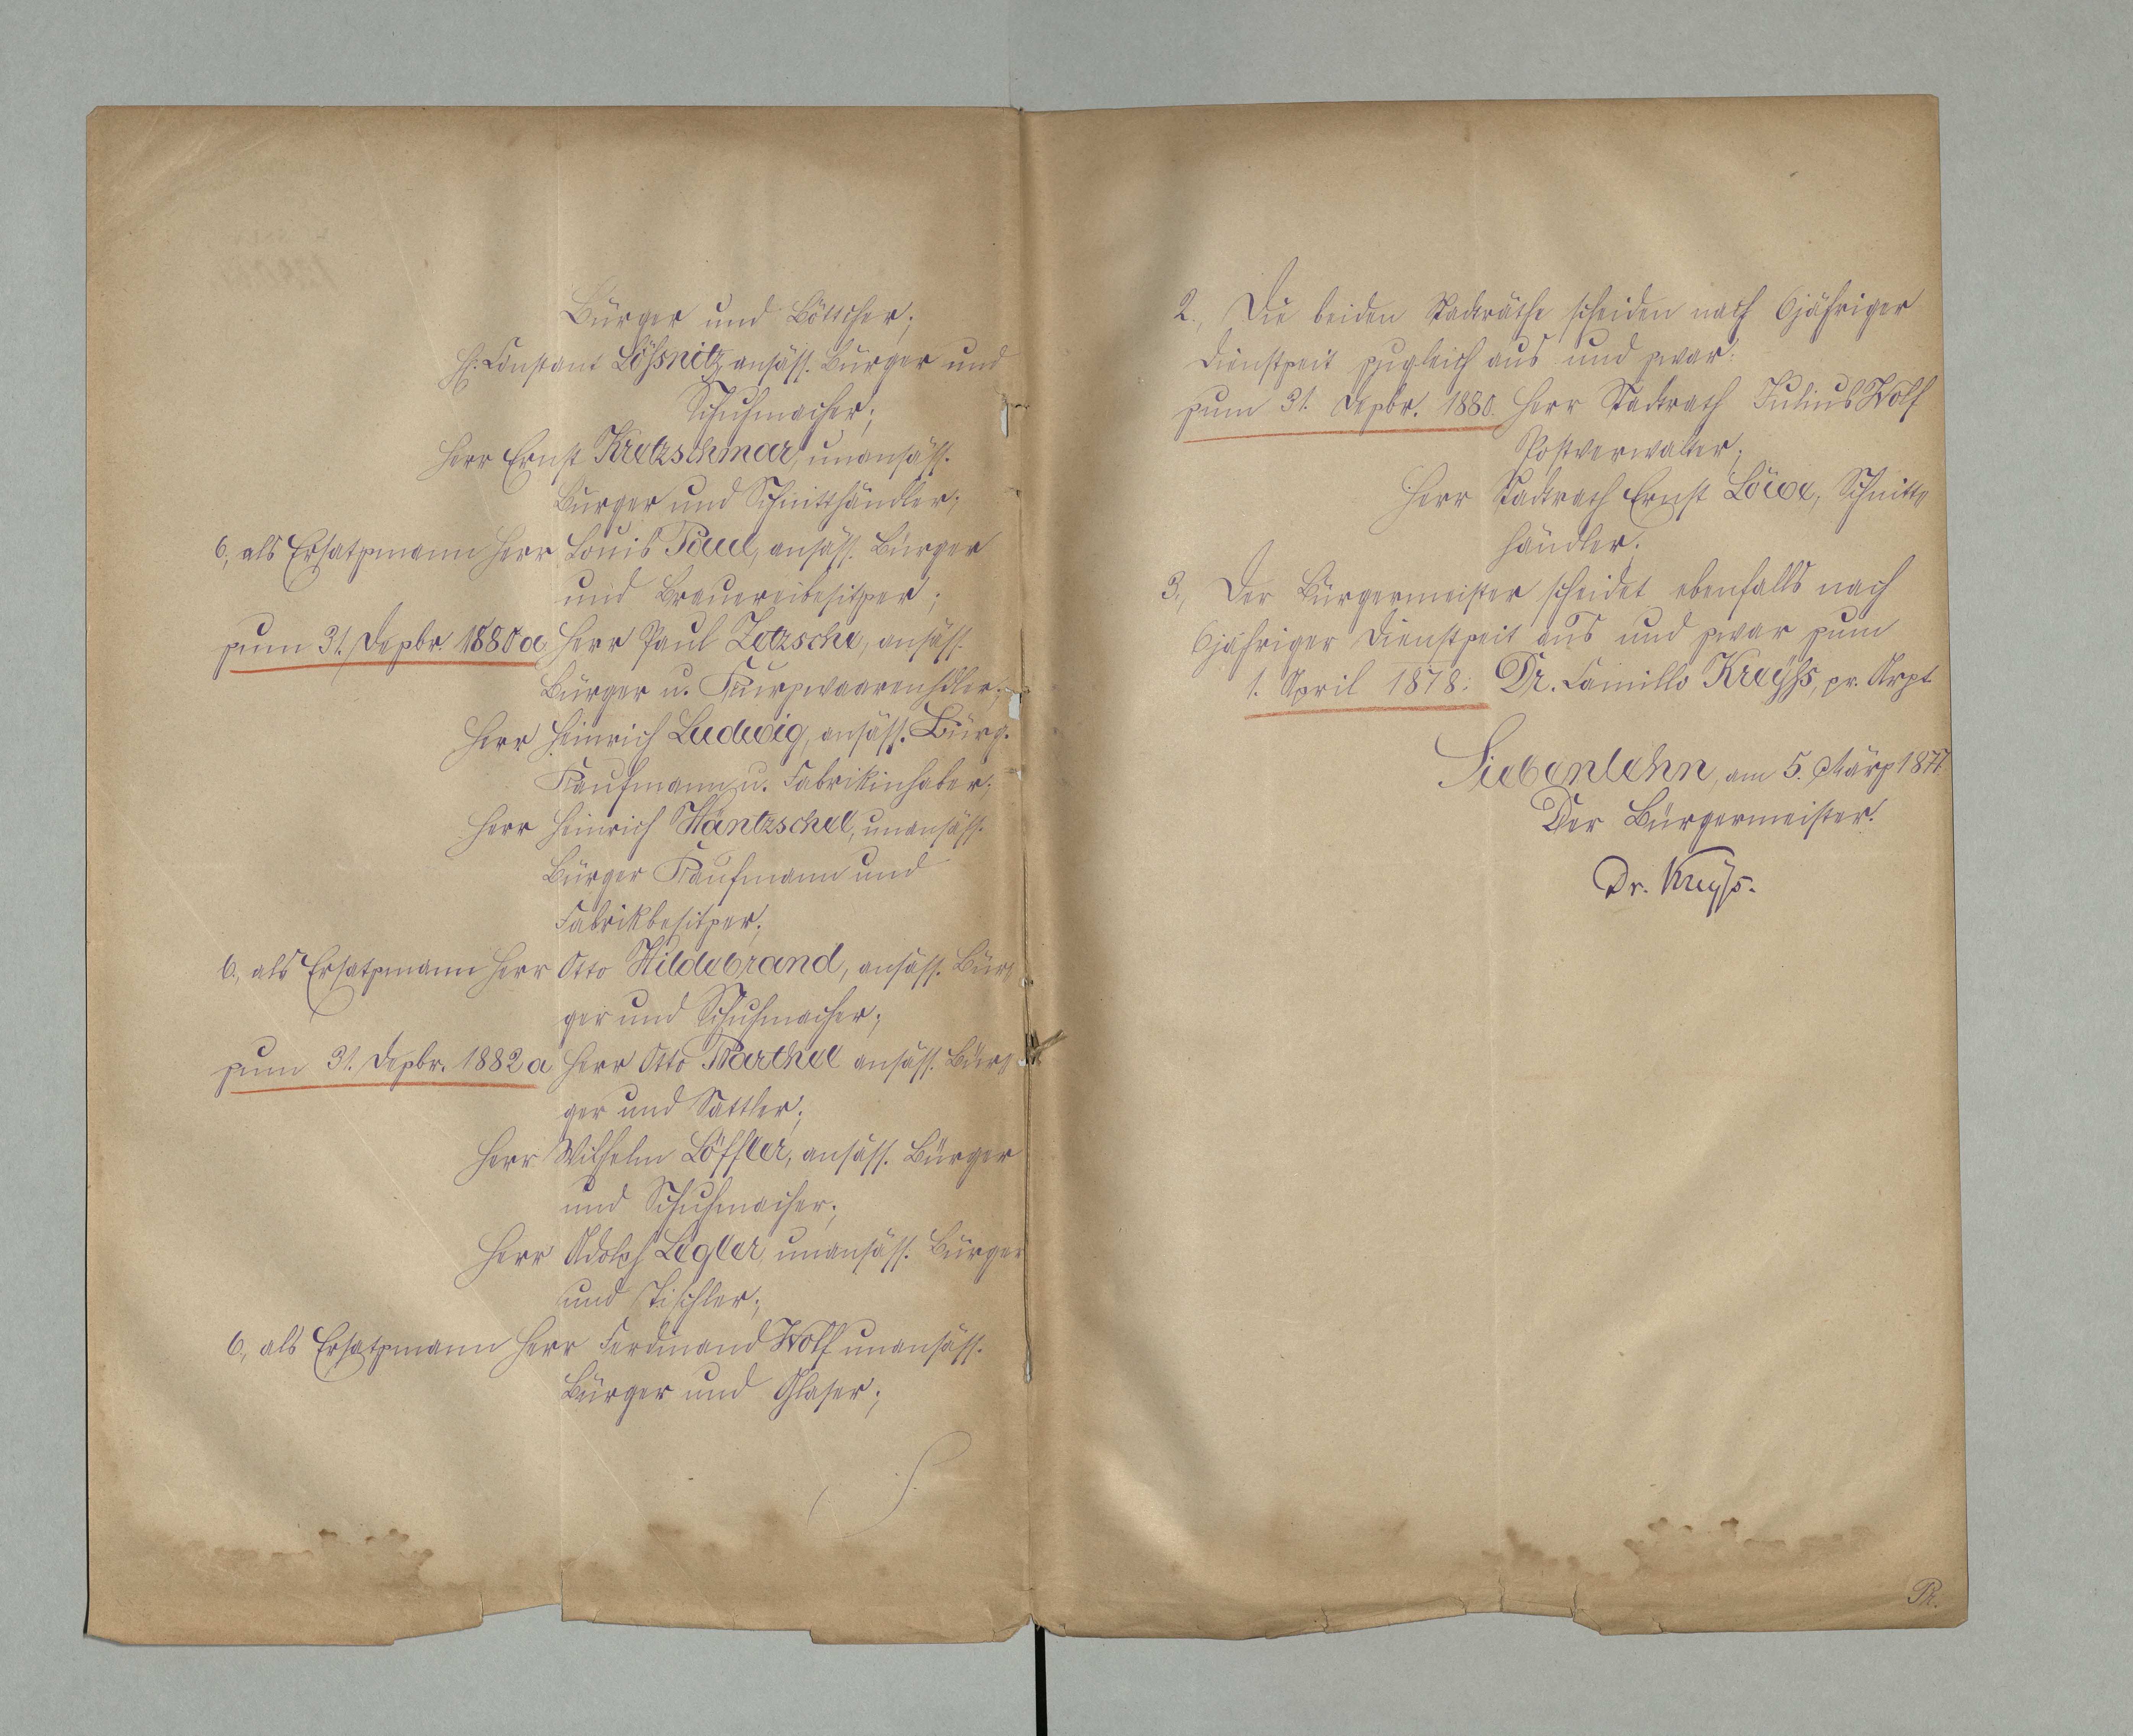 Bürger und Böttcher;
H: Constant Lößnitz, ansäss. Bürger und
Schuhmacher;
Herr Ernst Kretzschmar, unansäss.
Bürger und Schnitthändler;
b., als Ersatzmann Herr Louis Paul, ansäss. Bürger
und Brauereibesitzer;
zum 31. Dezbr. 1880 a Herr Paul Zetzsche, ansäss.
Bürger u. Kurzwaarenhdler;
Herr Heinrich Ludwig, ansäss. Bürg.
Kaufmann u. Fabrikinhaber;
Herr Heinrich Häntzschel, unansäss.
Bürger Kaufmann und
Fabrikbesitzer;
b., als Ersatzmann Herr Otto Hildebrand, ansäss. Bür-
ger und Schuhmacher;
zum 31. Dezbr. 1882 a Herr Otto Barthel ansäss. Bür-
ger und Sattler;
Herr Wilhelm Löffler, ansäss. Bürger
und Schuhmacher;
Herr Adolph Legler, unansäss. Bürger
und Tischler;
b., als Ersatzmann Herr Ferdinand Wolf unansäss.
Bürger und Glaser;
2., Die beiden Stadträthe scheiden nach 6jähriger
Dienstzeit zugleich aus und zwar:
zum 31. Dezbr. 1880. Herr Stadtrath Julius Wolf
Postverwalter;
Herr Stadtrath Ernst Löwe, Schnitt-
händler.
3., Der Bürgermeister scheidet ebenfalls nach
6jähriger Dienstzeit aus und zwar zum
1. April 1878: Dr. Camillo Kreyßs, pr. Arzt.
Siebenlehn, am 5. März 1877.
Der Bürgermeister.
Dr. Kreyß.